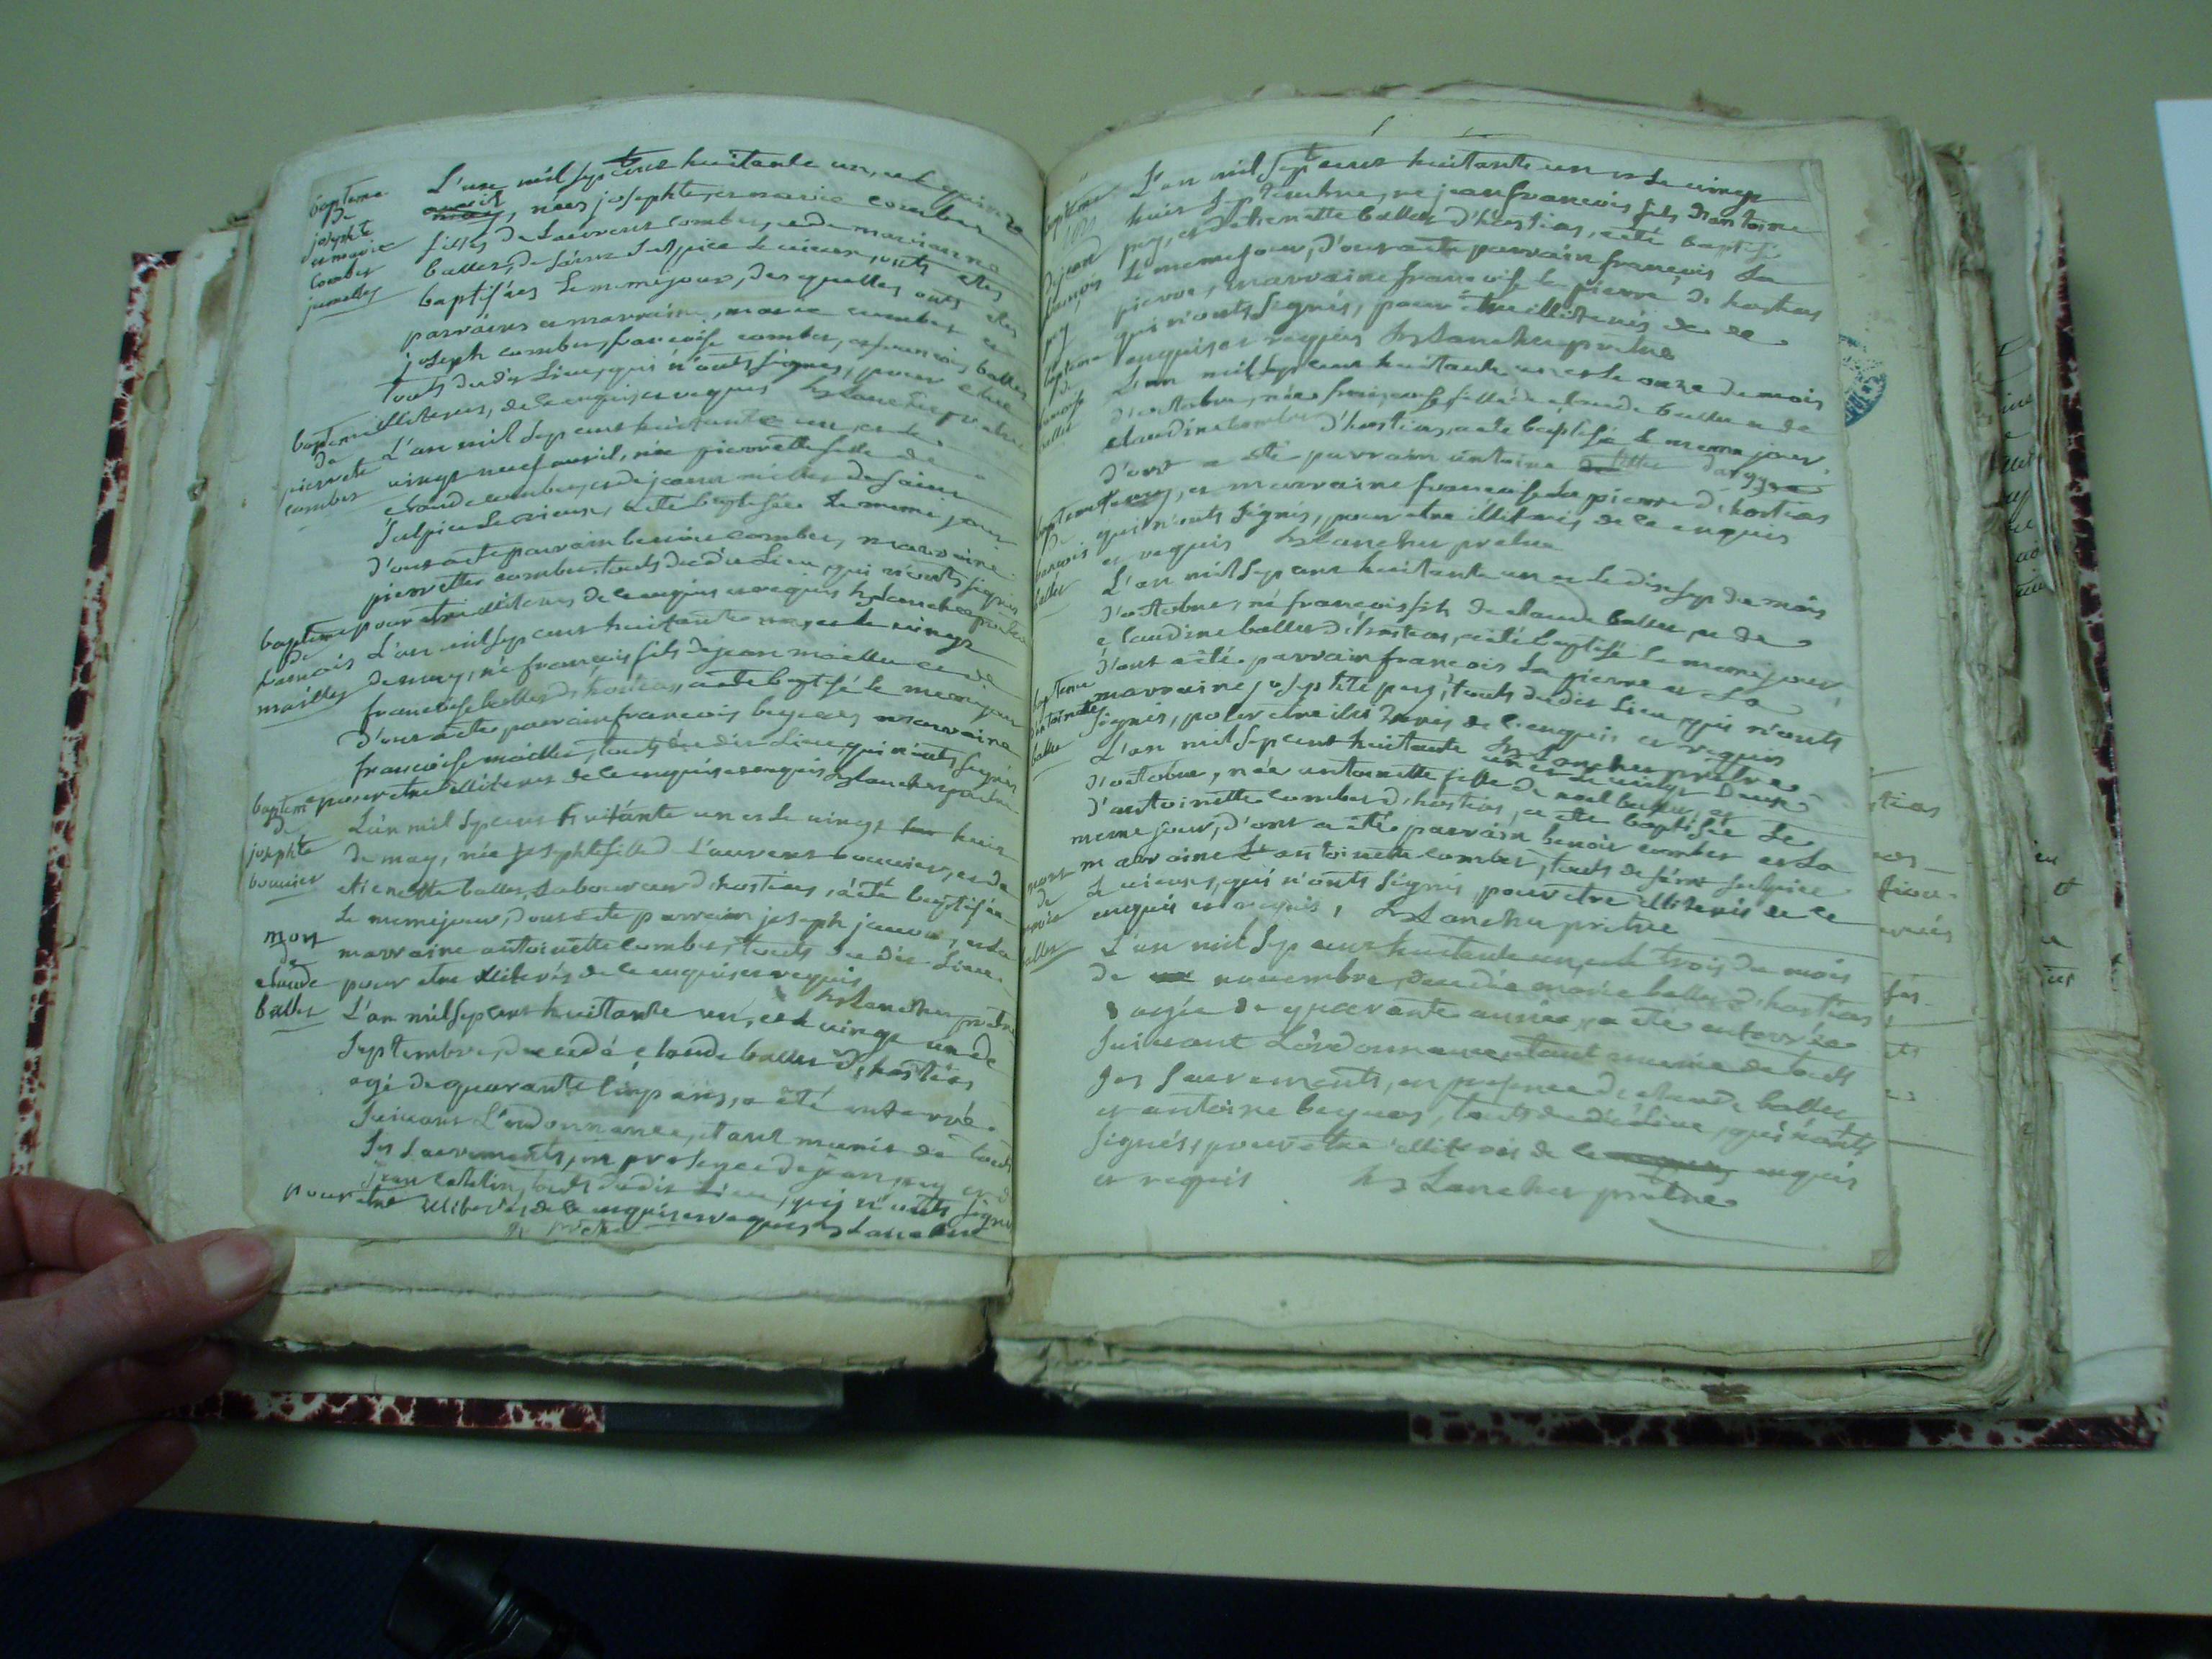 bapteme
de
josephte
et marie
combes
jumelles
L'an mil sept cens huitante un, et le quinze
avril, nées josephte, et marie combes
filles de Laurens combes, et de marianne
balles, de saint sulpice le vieux, onts etés
baptisées le meme jour, des quelles onts etés
parrains et marraine, marie combes et
joseph combes, francoise combes, et francois balles
touts dudit Lieu, qui n'onts signés, pour etre
illiterés, de ce enquis et requis Lancher pretre
bapteme
de
pierrette
combes
L'an mil sept cens huitante un, et le
vingt neuf avril, née pierrette fille de
claude combes, et de jeanne milles de saint
sulpice le vieux, a eté baptisée le meme jour
d'ont a eté parrain benoit combes, marraine
pierrette combes touts dudit Lieu, qui n'onts signés
pour etre illiterés de ce enquis et requis Lancher pretre
bapteme
de
francois
mailles
L'an mil sept cens huitante un, et le vingt
de may, né francois fils de jean mailles et de
francoise balles d'hostias, a eté baptisé le meme jour
d'ont a eté parrain francois begues, marraine
francoise mailles, touts dudit Lieu, qui n'onts signés
pour etre illiterés de ce enquis et requis Lancher pretre
bapteme
de
josephte
bouvier
L'an mil sept cens huitante un et le vingt huit
de may, née josephte fille d Laurens bouvier, et de
etienette balles, Laboureur d'hostias, a eté baptisée
le meme jour, d'ont a eté parrain joseph, et la
marraine antoinette combes, touts dudit Lieu
pour etre illiterés de ce enquis et requis
Lancher pretre
mort
de
claude
balles
L'an mil sept cens huitante un, et le vingt un de
septembre, decedé claude balles d'hostias
agé de quarante cinq ans, a eté enterré
suivant L'ordonnance, etant munis de touts
ses sacrements, en presence de jean pey et de
jean, touts dudit Lieu, qui n'onts signé
pour etre illiterés de ce enquis et requis Lancher
pretre
bapteme
de jean
francois
pey
L'an mil sept cens huitante un et le vingt
huit septembre, né jean francois fils d'antoine
pey, et d'etienette balles d'hostias, a eté baptisé
le meme jour, d'ont a eté parrain francois La
pierre, marraine francoise la pierre de hostias
qui n'onts signés, pour etre illiterés de ce
enquis et requis Lancher pretre
bapteme
de
francoise
balles
L'an mil sept cens huitante un et le onze du mois
d'octobre, née francoise fille de claude balles et de
claudine combes d'hostias, a eté baptisée le meme jour,
d'ont a eté parrain antoine
et marraine francoise La pierre d'hostias
qui n'onts signés, pour etre illiterés de ce enquis
et requis Lancher pretre
bapteme
de
francois
balles
L'an mil sept cens huitante un et le dix sept du mois
d'octobre, né francois fils de claude balles, et de
claudine balles d'hostias, a eté baptisé le meme jour,
d'ont a eté parrain francois La pierre et La
marraine josephte pey, touts dudit Lieu, qui n'onts
signés, pour etre illiterés de ce enquis et requis
Lancher pretre
bapteme
d'antoinette
balles
L'an mil sept cens huitante un et le vingt deux
d'octobre, née antoinette fille de noel balles, et
d'antoinette combes d'hostias, a eté baptisée le
meme jour, d'ont a eté parrain benoit combes et La
marraine antoinette combes, touts de saint sulpice
le vieux, qui n'onts signés, pour etre illiterés de ce
enquis et requis, Lancher pretre
mort
de
marie
balles
L'an mil sept cens huitante un, et le trois du mois
de novembre, decedée marie balles d'hostias
agée de quarante années, a eté enterrée
suivant L'ordonnance, etant munie de touts
ses sacrements, en presence de claude balles
et antoine begues, touts dudit Lieu, qui n'onts
signés, pour etre illiterés de ce enquis
et requis Lancher pretre